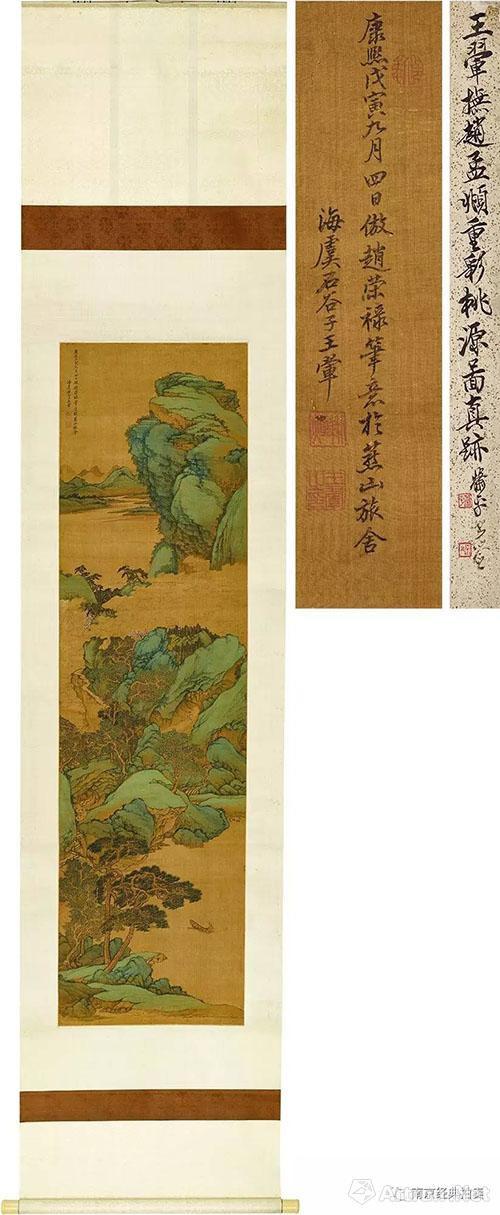 康熙戊寅九月四日倣趙榮祿筆意於燕山旅舍
海虞石谷子王翬
王翬撫趙孟頫重彩桃源啚真跡
南京经典拍卖